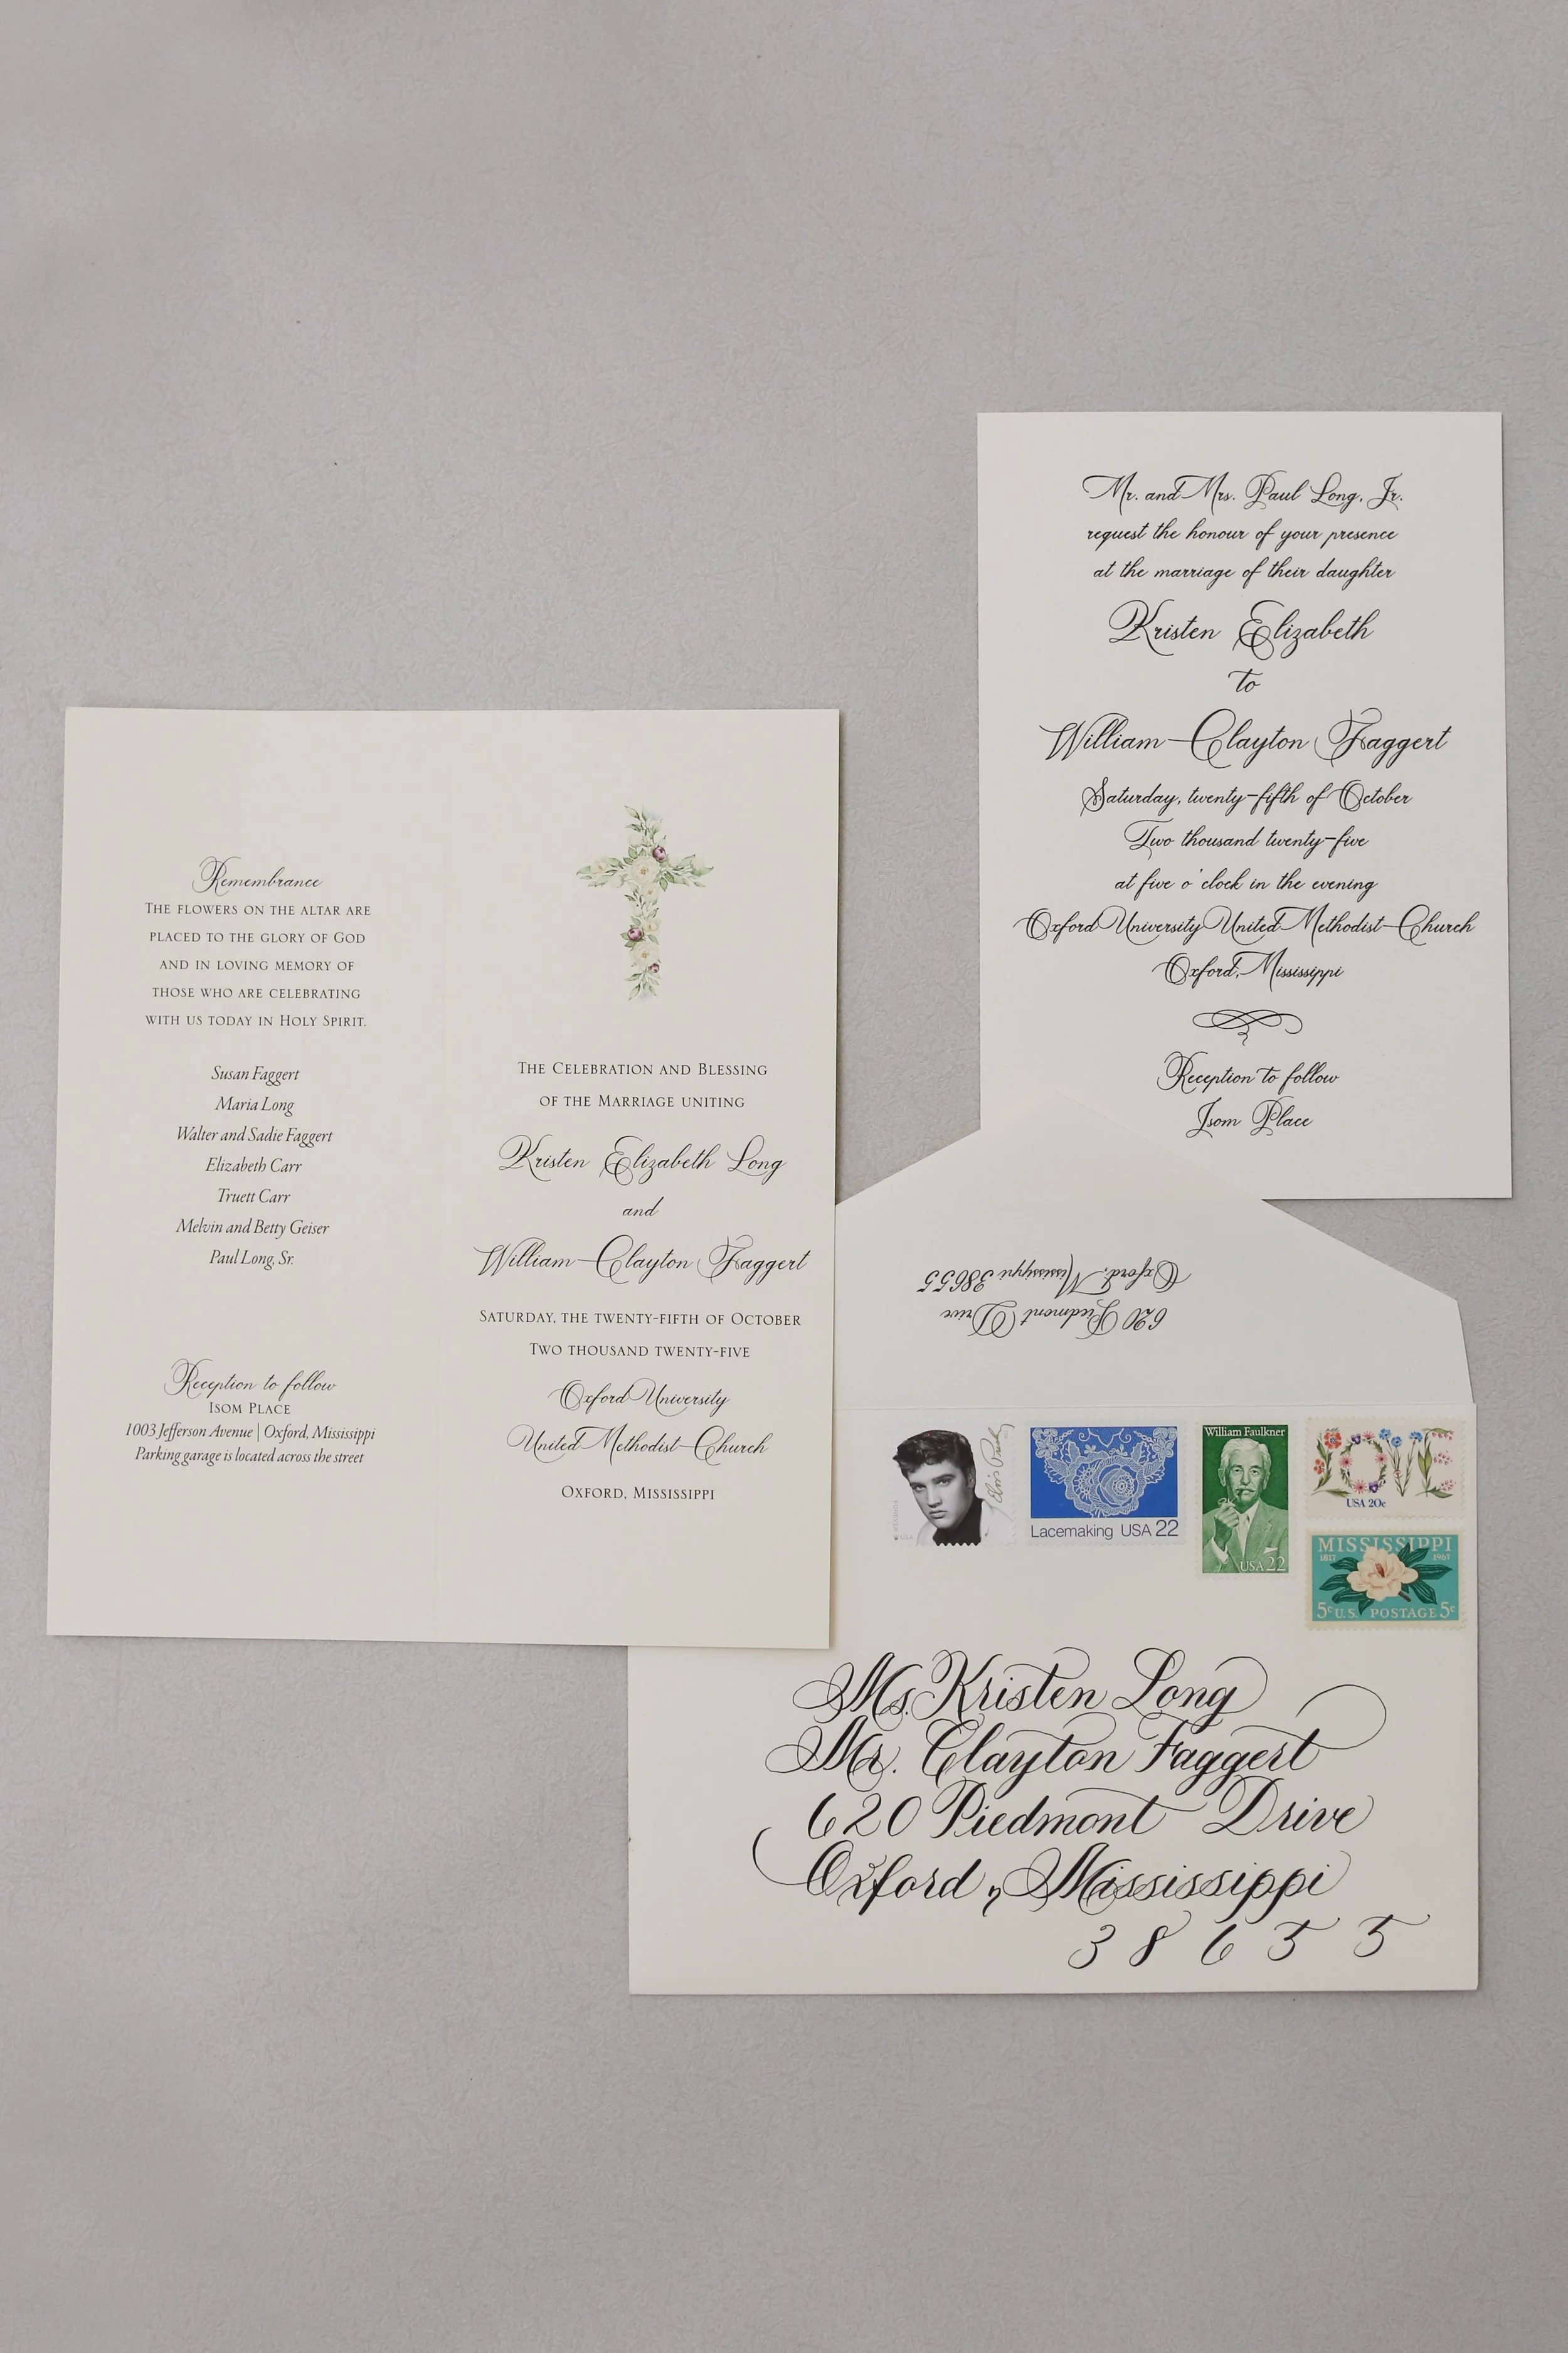 Remembrance
The flowers on the altar are
placed to the glory of God
and in loving memory of
those who are celebrating
with us today in Holy Spirit.
Susan Faggert
Maria Long
Walter and Sadie Faggert
Elizabeth Carr
Truett Carr
Melvin and Betty Geiser
Paul Long, Sr.
Reception to follow
Isom Place
1003 Jefferson Avenue | Oxford, Mississippi
Parking garage is located across the street
The Celebration and Blessing
of the Marriage uniting
Kristen Elizabeth Long
and
William Clayton Faggert
Saturday, the twenty-fifth of October
Two thousand twenty-five
Oxford University
United Methodist Church
Oxford, Mississippi
Mr. and Mrs. Paul Long, Jr.
request the honour of your presence
at the marriage of their daughter
Kristen Elizabeth
to
William Clayton Faggert
Saturday, twenty-fifth of October
Two thousand twenty-five
at five o'clock in the evening
Oxford University United Methodist Church
Oxford, Mississippi
Reception to follow
Isom Place
620 Piedmont Drive
Oxford, Mississippi 38655
Elvis Presley
Lacemaking USA 22
William Faulkner
USA 22
LOVE
USA 20c
MISSISSIPPI
1817 1967
5c U.S. POSTAGE 5c
Ms. Kristen Long
Mr. Clayton Faggert
620 Piedmont Drive
Oxford, Mississippi
38655